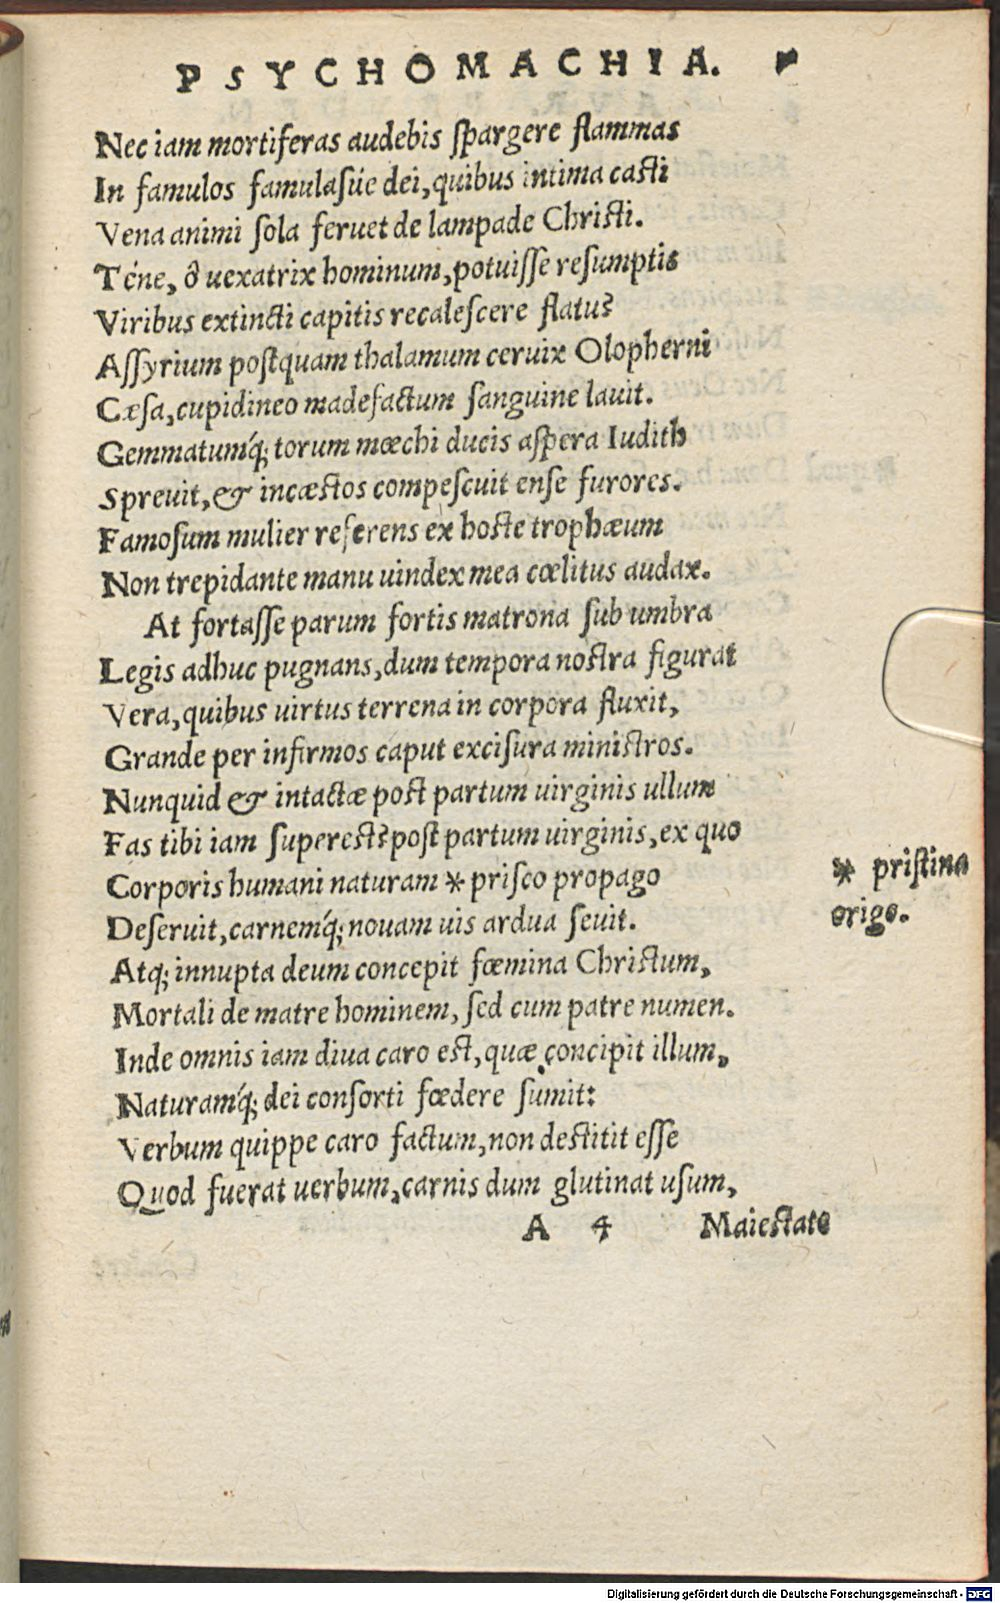 PSYCHOMACHIA.
Nec iam mortiferas audebis spargere flammas
In famulos famulasúe dei, quibus intima casti
Vena animi sola feruet de lampade Christi.
Téne, ô uexatrix hominum, potuisse resumptis
Viribus extincti capitis recalescere flatu?
Assyrium postquam thalamum ceruix Olopherni
Cæsa, cupidineo madefactum sanguine lauit.
Gemmatumq́; torum mœchi ducis aspera Iudith
Spreuit, & incæstos compescuit ense furores.
Famosum mulier referens ex hoste trophæum
Non trepidante manu uindex mea cœlitus audax.
At fortasse parum fortis matrona sub umbra
Legis adhuc pugnans, dum tempora nostra figurat
Vera, quibus uirtus terrena in corpora fluxit,
Grande per infirmos caput excisura ministros.
Nunquid & intactæ post partum uirginis ullum
Fas tibi iam superest? post partum uirginis, ex quo
Corporis humani naturam * prisco propago
* pristina
origo.
Deseruit, carnemq́; nouam uis ardua seuit.
Atq; innupta deum concepit fœmina Christum,
Mortali de matre hominem, sed cum patre numen.
Inde omnis iam diua caro est, quæ concipit illum,
Naturamq́; dei consorti fœdere sumit:
Verbum quippe caro factum, non destitit esse
Quod fuerat uerbum, carnis dum glutinat usum,
A 4 Maiestate
Digitalisierung gefördert durch die Deutsche Forschungsgemeinschaft - DFG